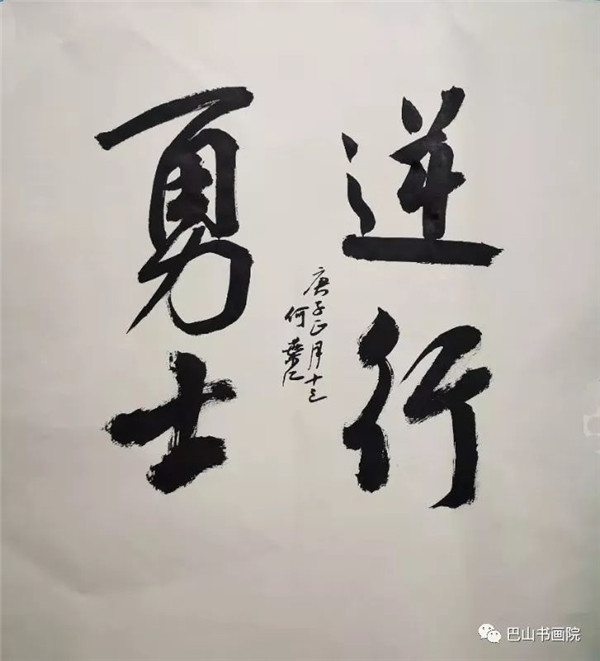 逆行
勇士
庚子正月十三
何
巴山书画院